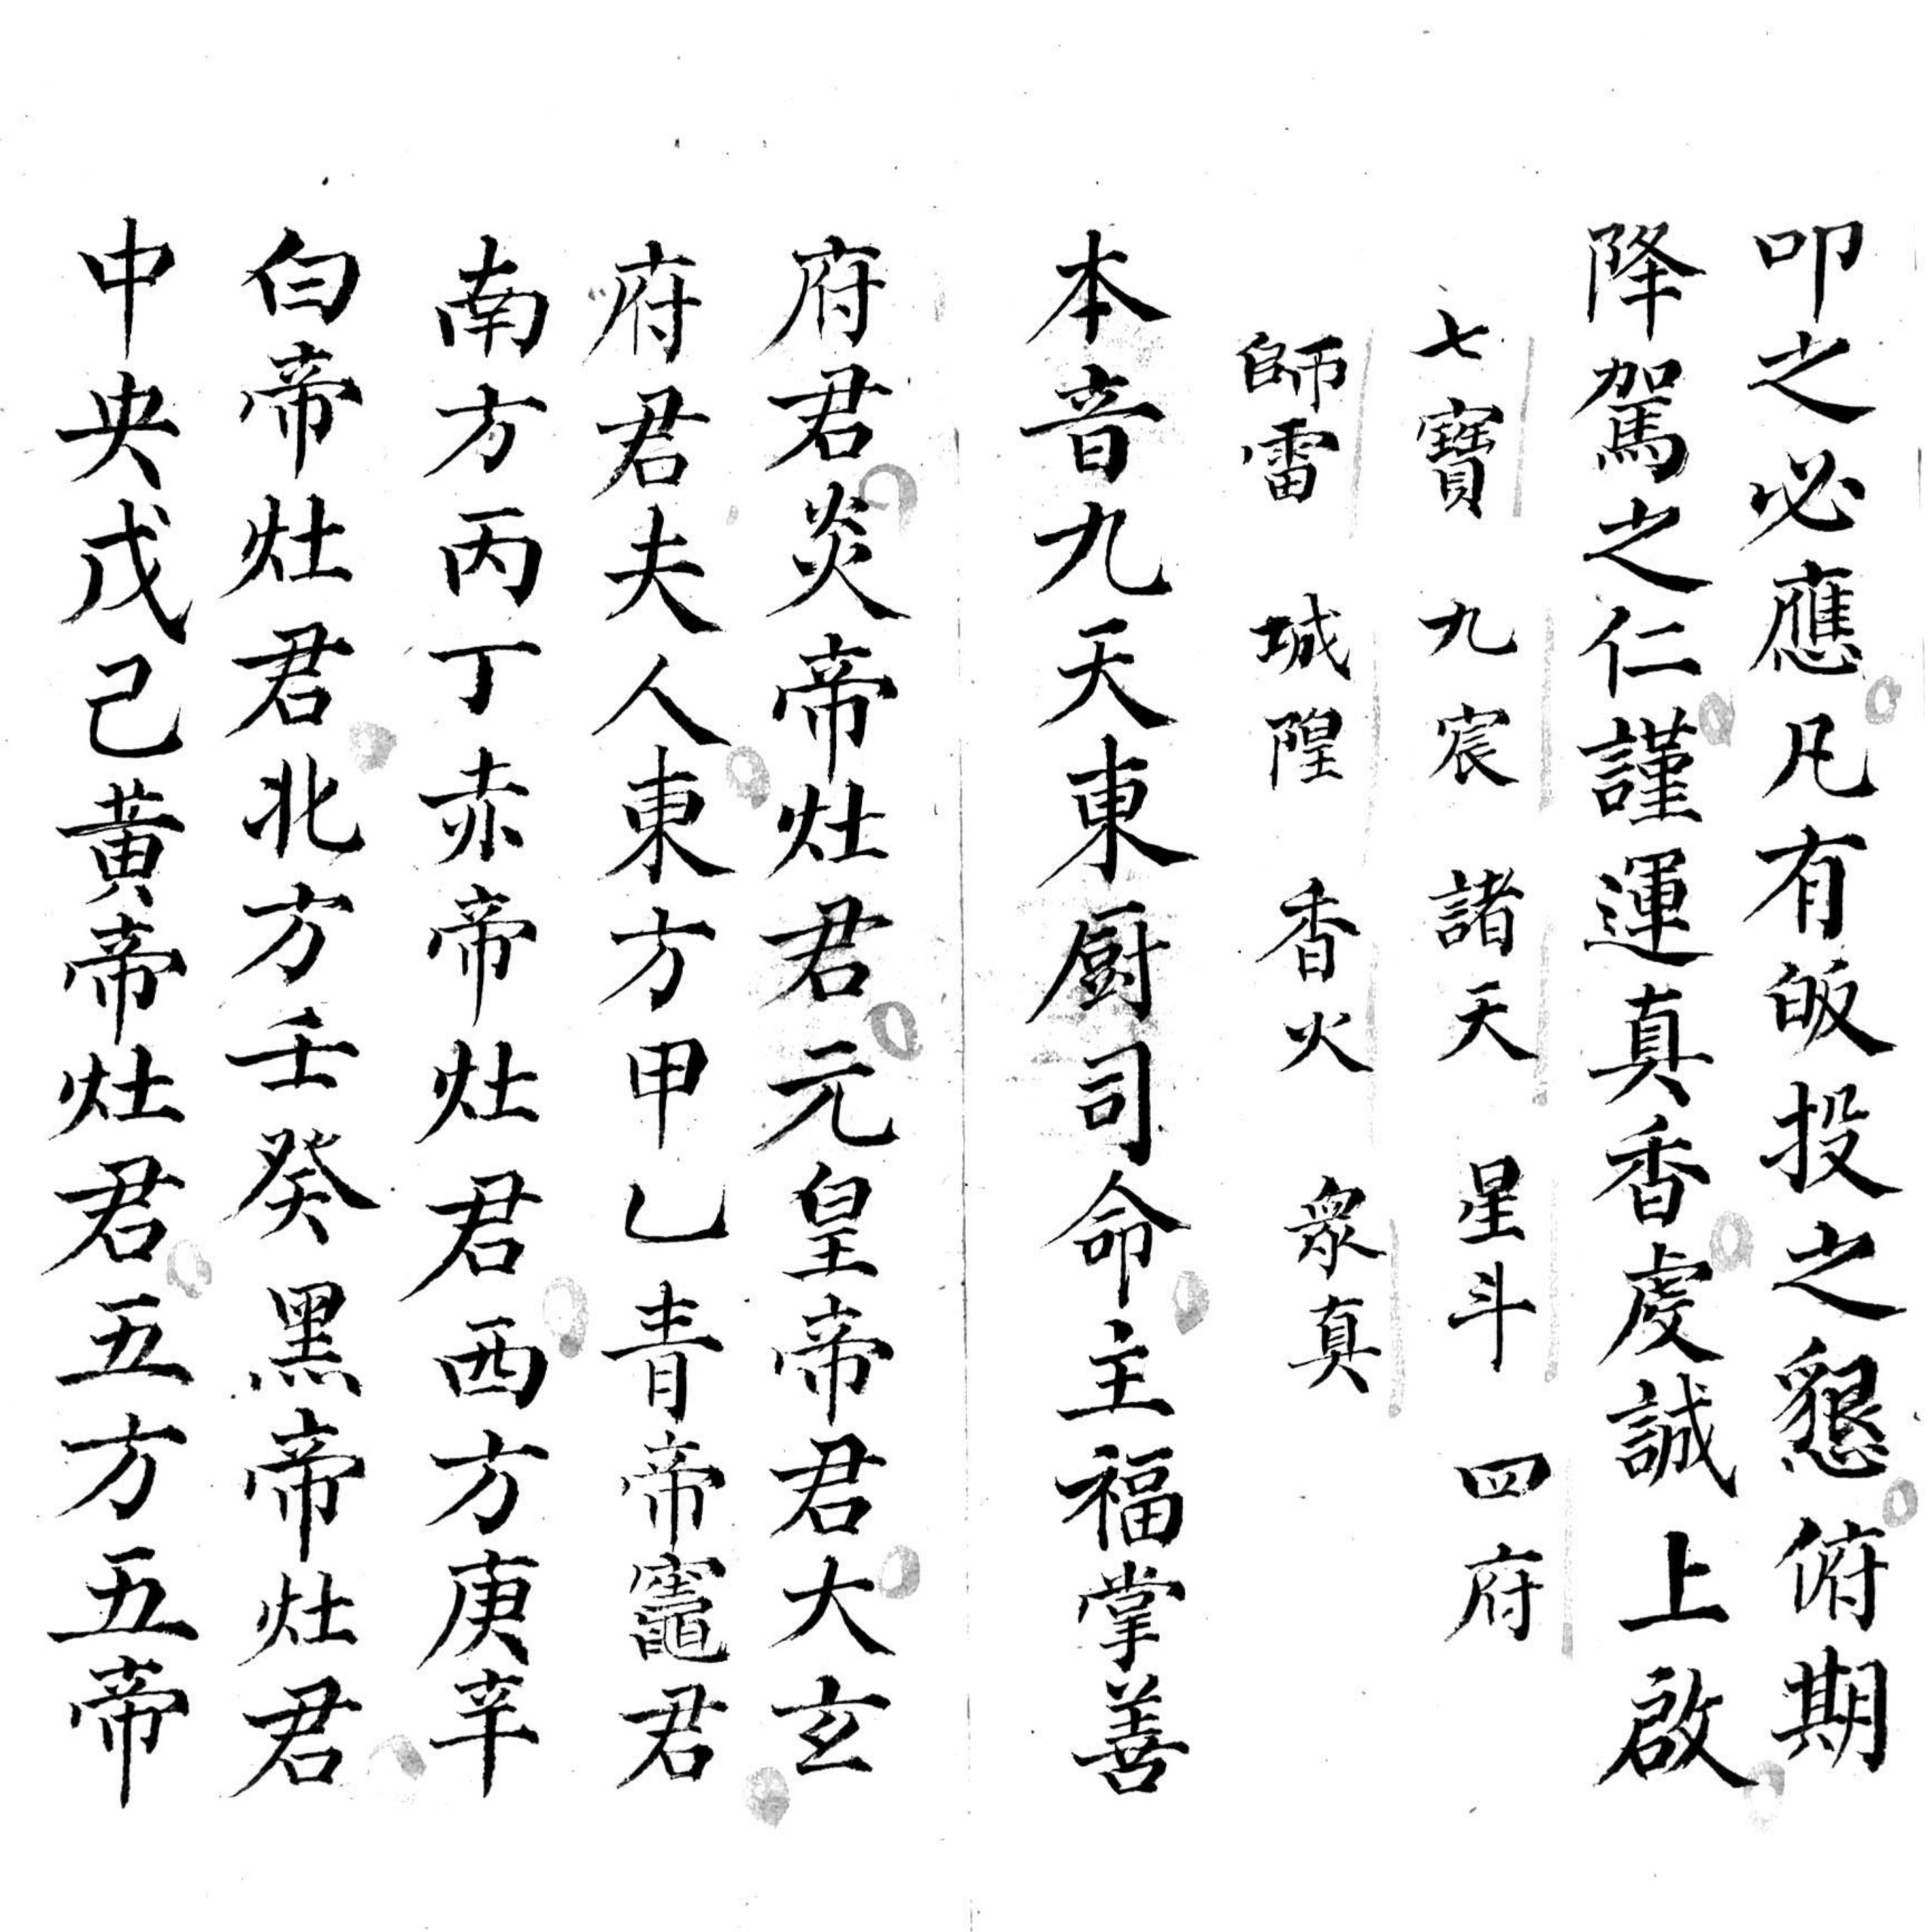 叩之必應凡有皈投之懇俯期
降駕之仁謹運真香虔誠上啟
七寶 九宸 諸天 星斗 四府
師雷 城隍 香火 衆真
本音九天東厨司命主福掌善
府君炎帝灶君元皇帝君大玄
府君夫人東方甲乙青帝竈君
南方丙丁赤帝灶君西方庚辛
白帝灶君北方壬癸黑帝灶君
中央戊己黄帝灶君五方五帝